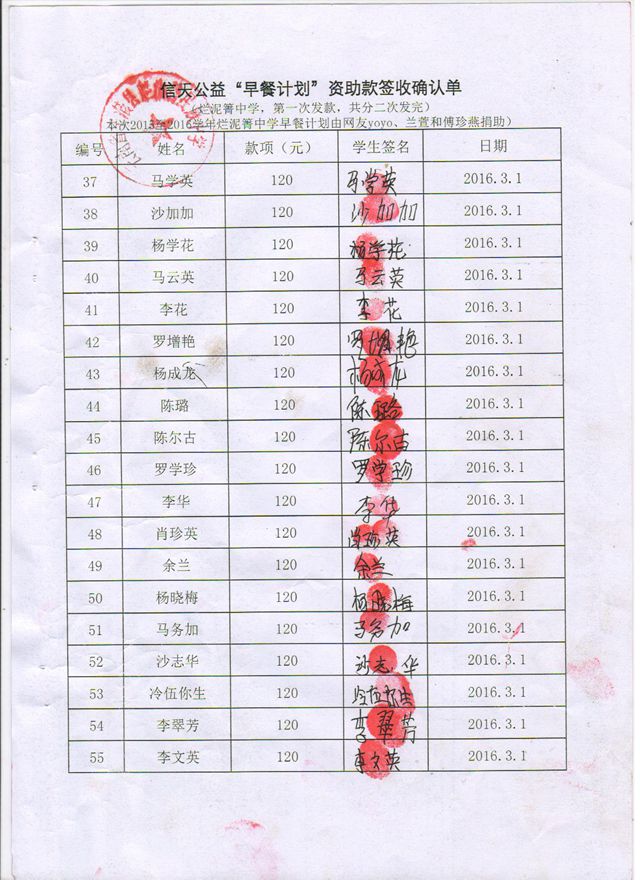 信天公益“早餐计划”资助款签收确认单
（烂泥箐中学，第一次发款，共分二次发完）
本次2015至2016学年烂泥箐中学早餐计划由网友yoyo、兰萱和傅珍燕捐助）
编号 姓名 款项（元） 学生签名 日期
37 马学英 120 马学英 2016.3.1
38 沙加加 120 沙加加 2016.3.1
39 杨学花 120 杨学花 2016.3.1
40 马云英 120 马云英 2016.3.1
41 李花 120 李花 2016.3.1
42 罗增艳 120 罗增艳 2016.3.1
43 杨成龙 120 杨成龙 2016.3.1
44 陈璐 120 陈璐 2016.3.1
45 陈尔古 120 陈尔古 2016.3.1
46 罗学珍 120 罗学珍 2016.3.1
47 李华 120 李华 2016.3.1
48 肖珍英 120 肖珍英 2016.3.1
49 余兰 120 余兰 2016.3.1
50 杨晓梅 120 杨晓梅 2016.3.1
51 马务加 120 马务加 2016.3.1
52 沙志华 120 沙志华 2016.3.1
53 冷伍你生 120 冷伍你生 2016.3.1
54 李翠芳 120 李翠芳 2016.3.1
55 李文英 120 李文英 2016.3.1